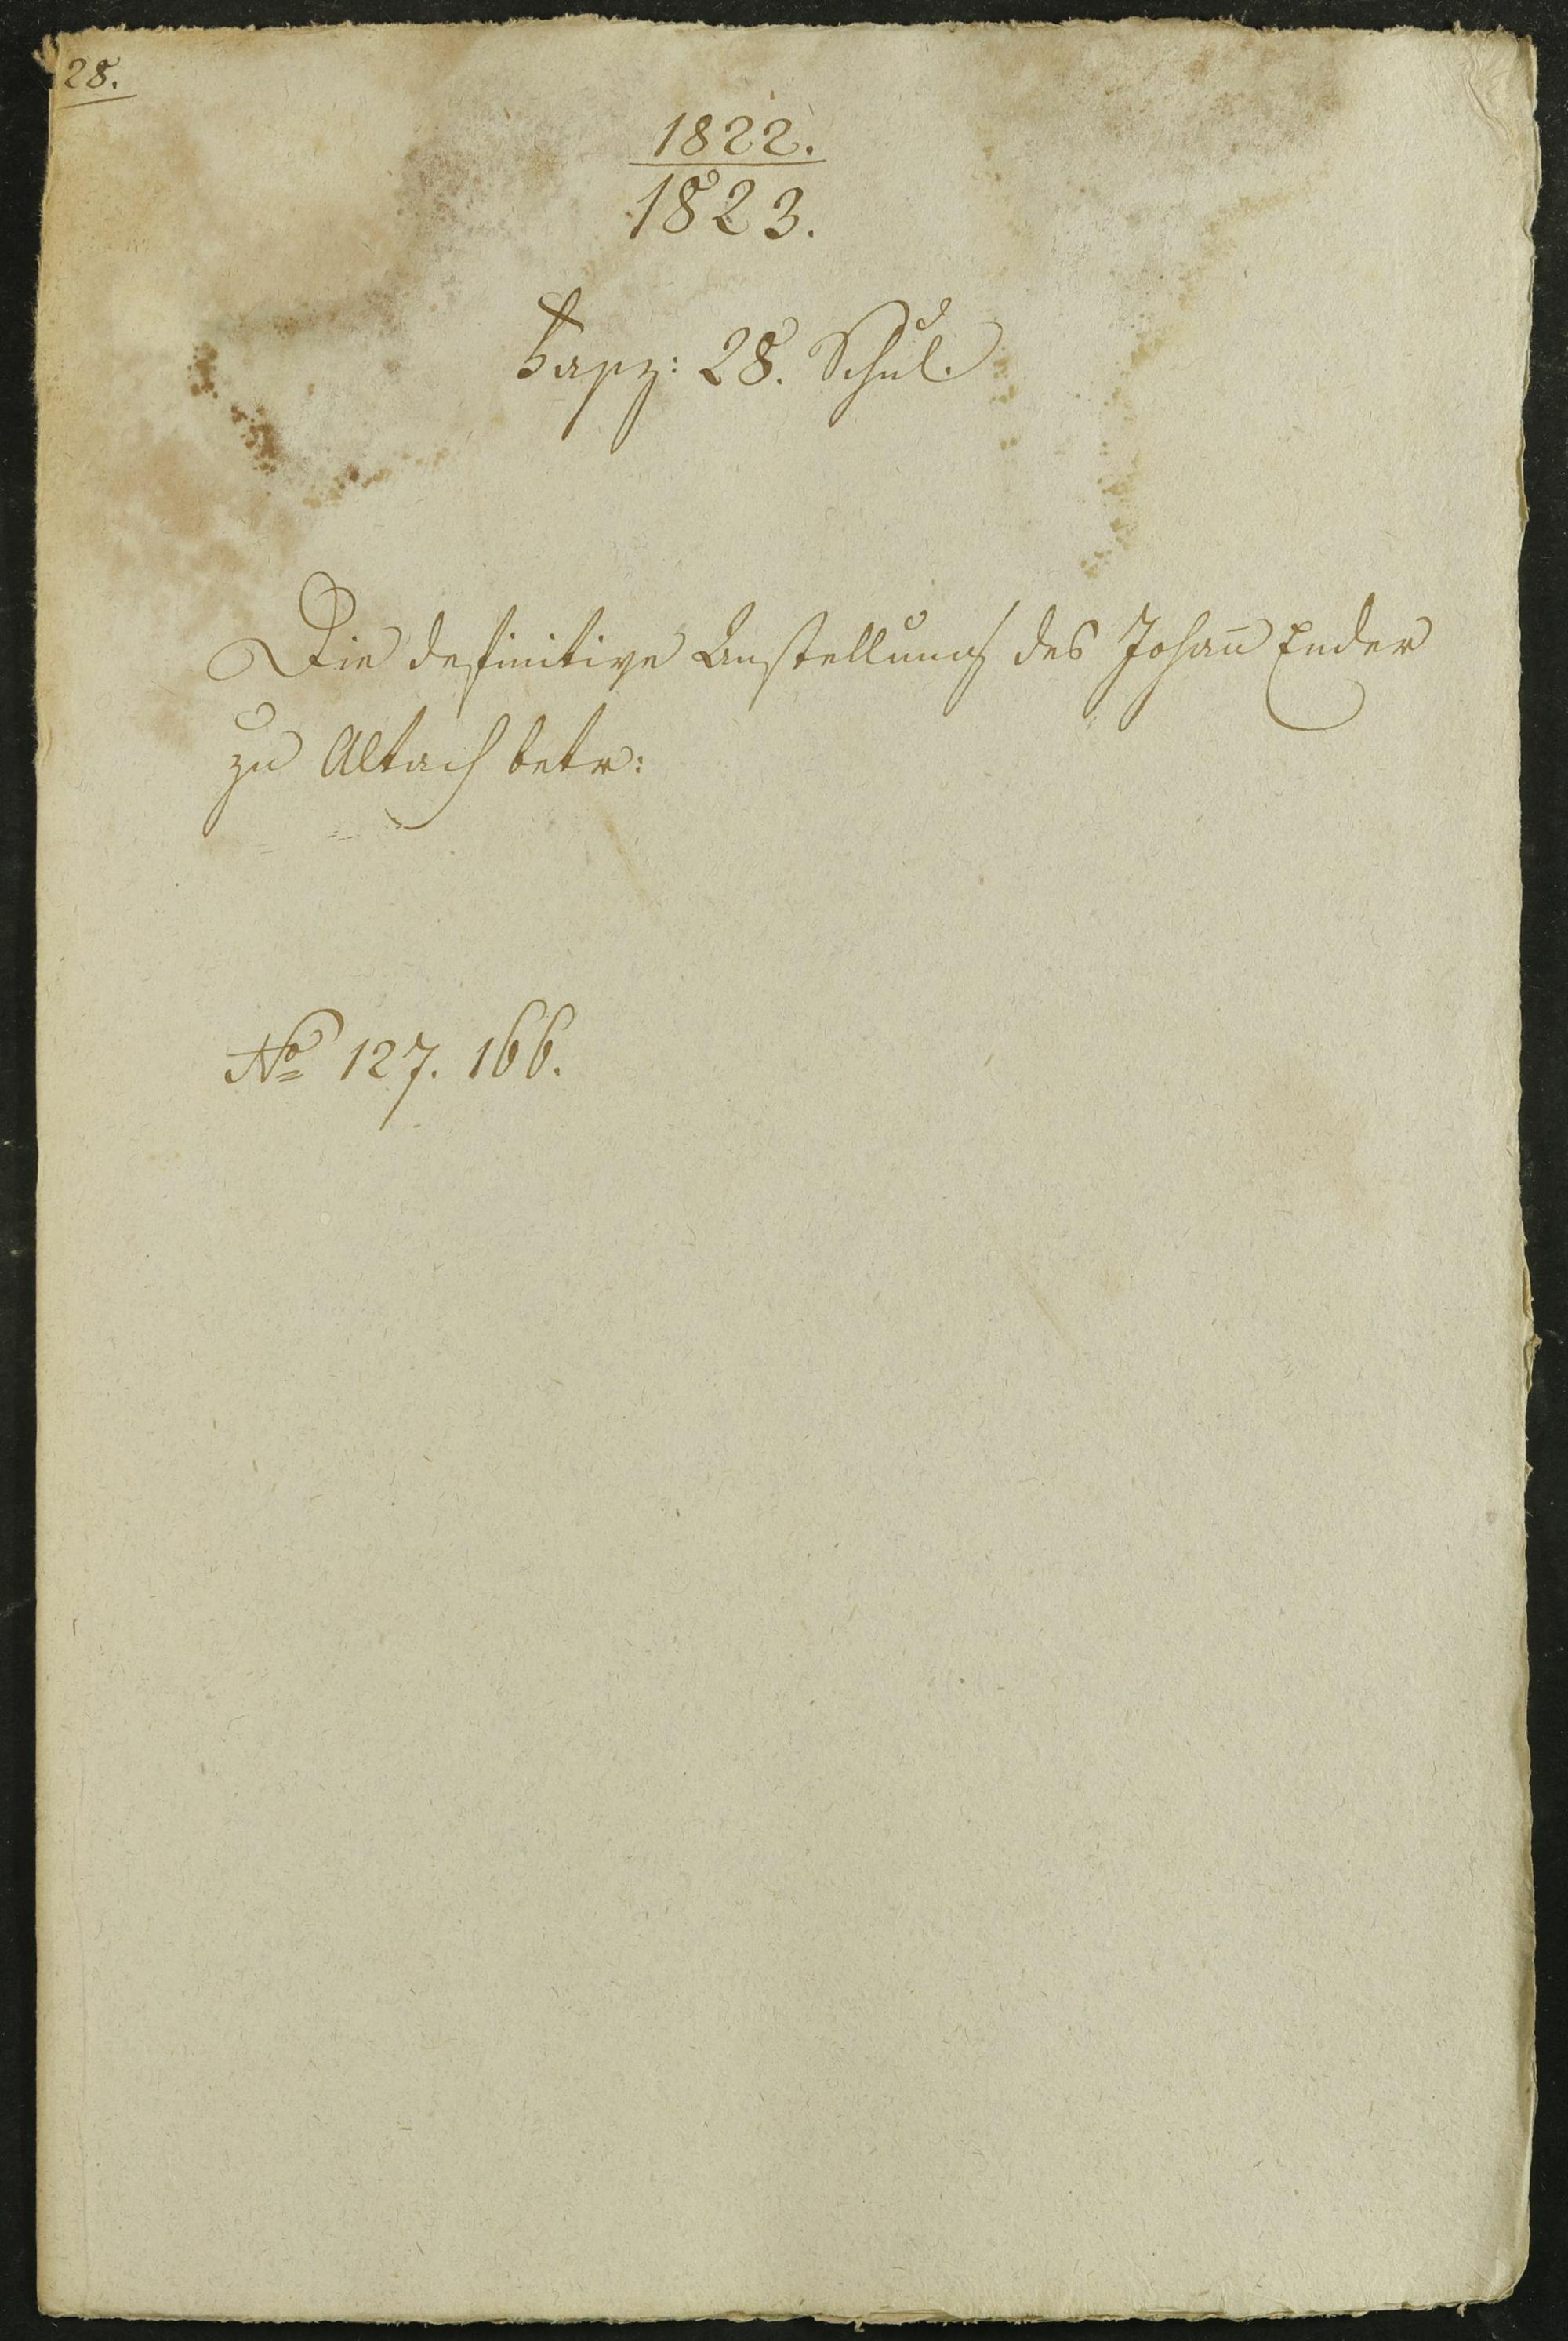 28.
1822.
1823.
Fasz: 28. Schul.
Die definitive Anstellung des Johann Ender
zu Altach betr:
No 127. 166.